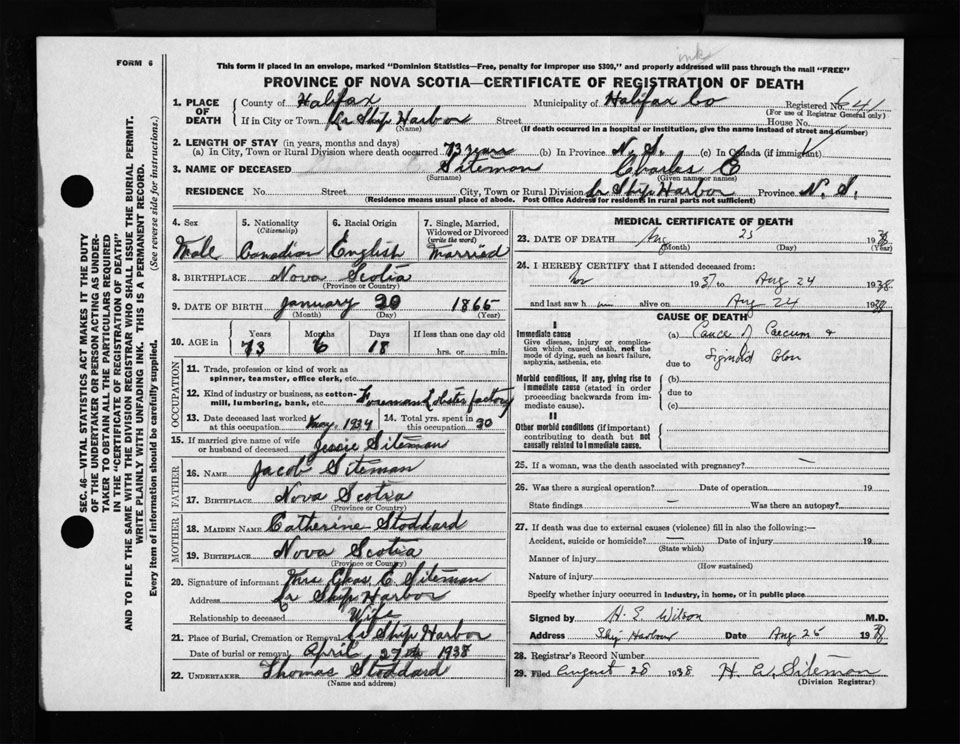 ink
FORM 6
This form if placed in an envelope, marked "Dominion Statistics—Free, penalty for improper use $300," and properly addressed will pass through the mail "FREE"
PROVINCE OF NOVA SCOTIA—CERTIFICATE OF REGISTRATION OF DEATH
SEC. 46—VITAL STATISTICS ACT MAKES IT THE DUTY
OF THE UNDERTAKER OR PERSON ACTING AS UNDER-
TAKER TO OBTAIN ALL THE PARTICULARS REQUIRED
IN THE "CERTIFICATE OF REGISTRATION OF DEATH"
AND TO FILE THE SAME WITH THE DIVISION REGISTRAR WHO SHALL ISSUE THE BURIAL PERMIT.
WRITE PLAINLY WITH UNFADING INK. THIS IS A PERMANENT RECORD.
Every item of information should be carefully supplied. (See reverse side for instructions.)
1. PLACE OF DEATH County of Halifax Municipality of Halifax Co Registered No. 641
(For use of Registrar General only)
If in City or Town Lr Ship Harbor Street House No.
(Name) (If death occurred in a hospital or institution, give the name instead of street and number)
2. LENGTH OF STAY (in years, months and days)
(a) In City, Town or Rural Division where death occurred 73 years (b) In Province N.S. (c) In Canada (if immigrant)
3. NAME OF DECEASED Siteman Charles E
(Surname) (Given name or names)
RESIDENCE No. Street City, Town or Rural Division Lr Ship Harbor Province N. S.
(Residence means usual place of abode. Post Office Address for residents in rural parts not sufficient)
4. Sex 5. Nationality 6. Racial Origin 7. Single, Married,
(Citizenship) Widowed or Divorced
(write the word)
Male Canadian English Married
8. BIRTHPLACE Nova Scotia
(Province or Country)
9. DATE OF BIRTH January 20 1865
(Month) (Day) (Year)
10. AGE in Years Months Days If less than one day old
73 6 18 hrs. or min.
OCCUPATION
11. Trade, profession or kind of work as
spinner, teamster, office clerk, etc.
12. Kind of industry or business, as cotton-
mill, lumbering, bank, etc. Foreman Lobster factory
13. Date deceased last worked at this occupation May, 1934 14. Total yrs. spent in this occupation 30
15. If married give name of wife
or husband of deceased Jessie Siteman
FATHER
16. NAME Jacob Siteman
17. BIRTHPLACE Nova Scotia
(Province or Country)
MOTHER
18. MAIDEN NAME Catherine Stoddard
19. BIRTHPLACE Nova Scotia
(Province or Country)
20. Signature of informant Mrs Chas. E. Siteman
Address Lr Ship Harbor
Relationship to deceased Wife
21. Place of Burial, Cremation or Removal Lr Ship Harbor
Date of burial or removal April 27th 1938
22. UNDERTAKER Thomas Stoddard
(Name and address)
MEDICAL CERTIFICATE OF DEATH
23. DATE OF DEATH Aug 25 1938
(Month) (Day) (Year)
24. I HEREBY CERTIFY that I attended deceased from:
Nov 1937 to Aug 24 1938
and last saw h im alive on Aug 24 1938
CAUSE OF DEATH
I
Immediate cause (a) Cancer of Caecum &
Give disease, injury or compli-
cation which caused death, not the
mode of dying, such as heart failure,
asphyxia, asthenia, etc
due to Sigmoid Colon
Morbid conditions, if any, giving rise to
immediate cause (stated in order
proceeding backwards from im-
mediate cause).
(b)
due to
(c)
II
Other morbid conditions (if important)
contributing to death but not
causally related to immediate cause.
25. If a woman, was the death associated with pregnancy? —
26. Was there a surgical operation? Date of operation 19
State findings — Was there an autopsy?
27. If death was due to external causes (violence) fill in also the following:—
Accident, suicide or homicide? — Date of injury 19
(State which)
Manner of injury
(How sustained)
Nature of injury
Specify whether injury occurred in industry, in home, or in public place
Signed by H. E. Wilson M.D.
Address Ship Harbour Date Aug 25 1938
28. Registrar's Record Number
29. Filed August 28 1938 H. A. Siteman
(Division Registrar)